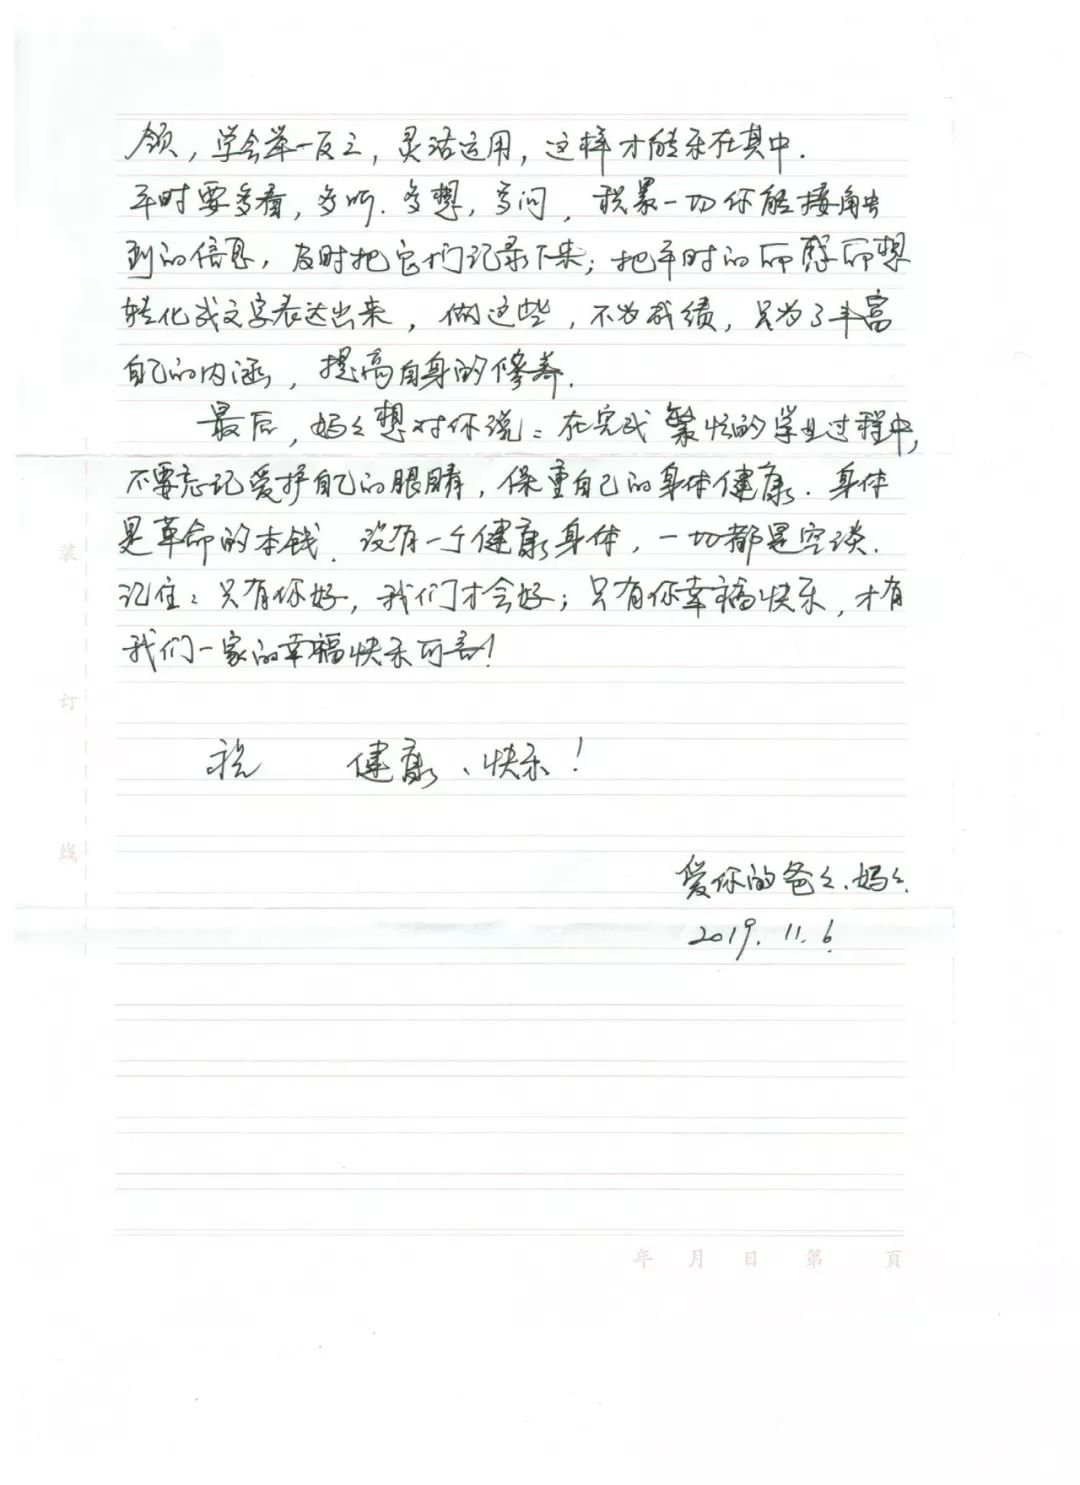 领，学会举一反三，灵活运用，这样才能乐在其中.
平时要多看，多听.多想，多问，积累一切你能接触
到的信息，及时把它们记录下来；把平时的所见所想
转化成文字表达出来，做这些，不为成绩，只为了丰富
自己的内涵，提高自身的修养.
最后，妈々想对你说：在完成繁忙的学业过程中,
不要忘记爱护自己的眼睛，保重自己的身体健康.身体
是革命的本钱.没有一个健康身体，一切都是空谈.
记住：只有你好，我们才会好；只有你幸福快乐，才有
我们一家的幸福快乐可言！
祝 健康、快乐！
爱你的爸々、妈々
2019.11.6
装
订
线
年 月 日 第 页